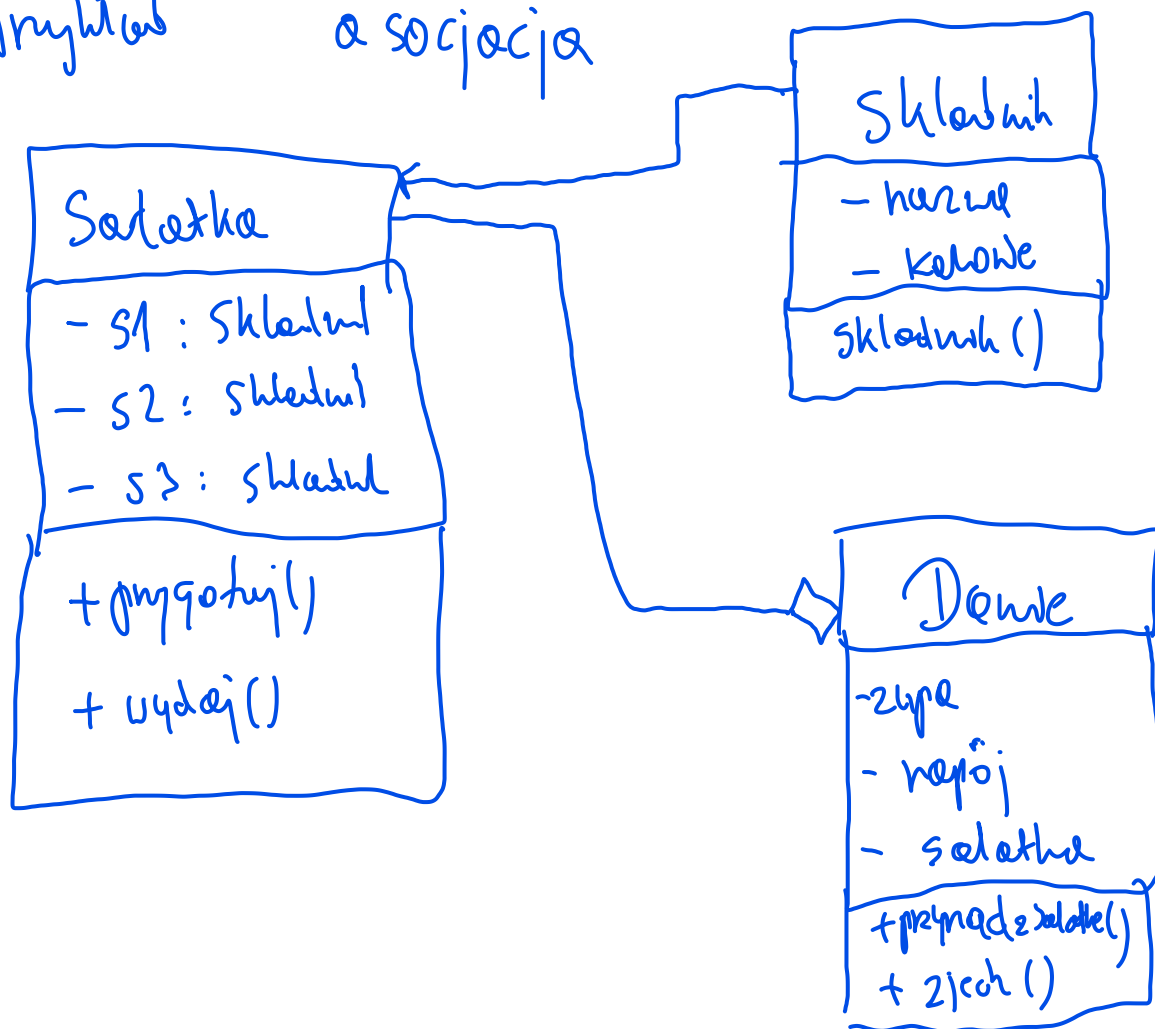 przykład asocjacja
Sałatka
- s1 : Składnik
- s2 : Składnik
- s3 : Składnik
+ przygotuj()
+ wydaj()
Składnik
- nazwa
- kalorie
składnik ()
Danie
- zupa
- napój
- sałatka
+ przyrządzSałatkę()
+ zjedz ()